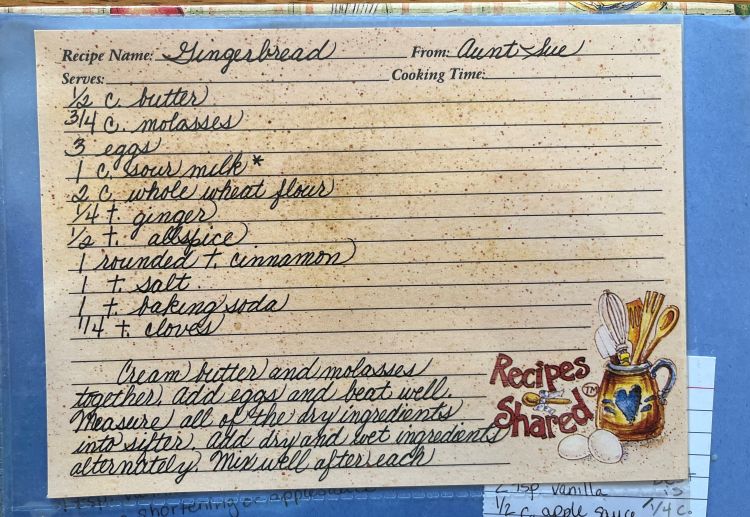 Recipe Name: Gingerbread From: Aunt Sue
Serves: Cooking Time:
1/2 c. butter
3/4 c. molasses
3 eggs
1 c. sour milk*
2 c whole wheat flour
1/4 t. ginger
1/2 t. allspice
1 rounded t. cinnamon
1 t. salt
1 t. baking soda
1/4 t. cloves
Cream butter and molasses
together. Add eggs and beat well.
Measure all of the dry ingredients
into sifter. Add dry and wet ingredients
alternately. Mix well after each
Recipes
Shared TM
shortening or applesauce
tsp vanilla
1/2 c. apple sauce
1/4 c.